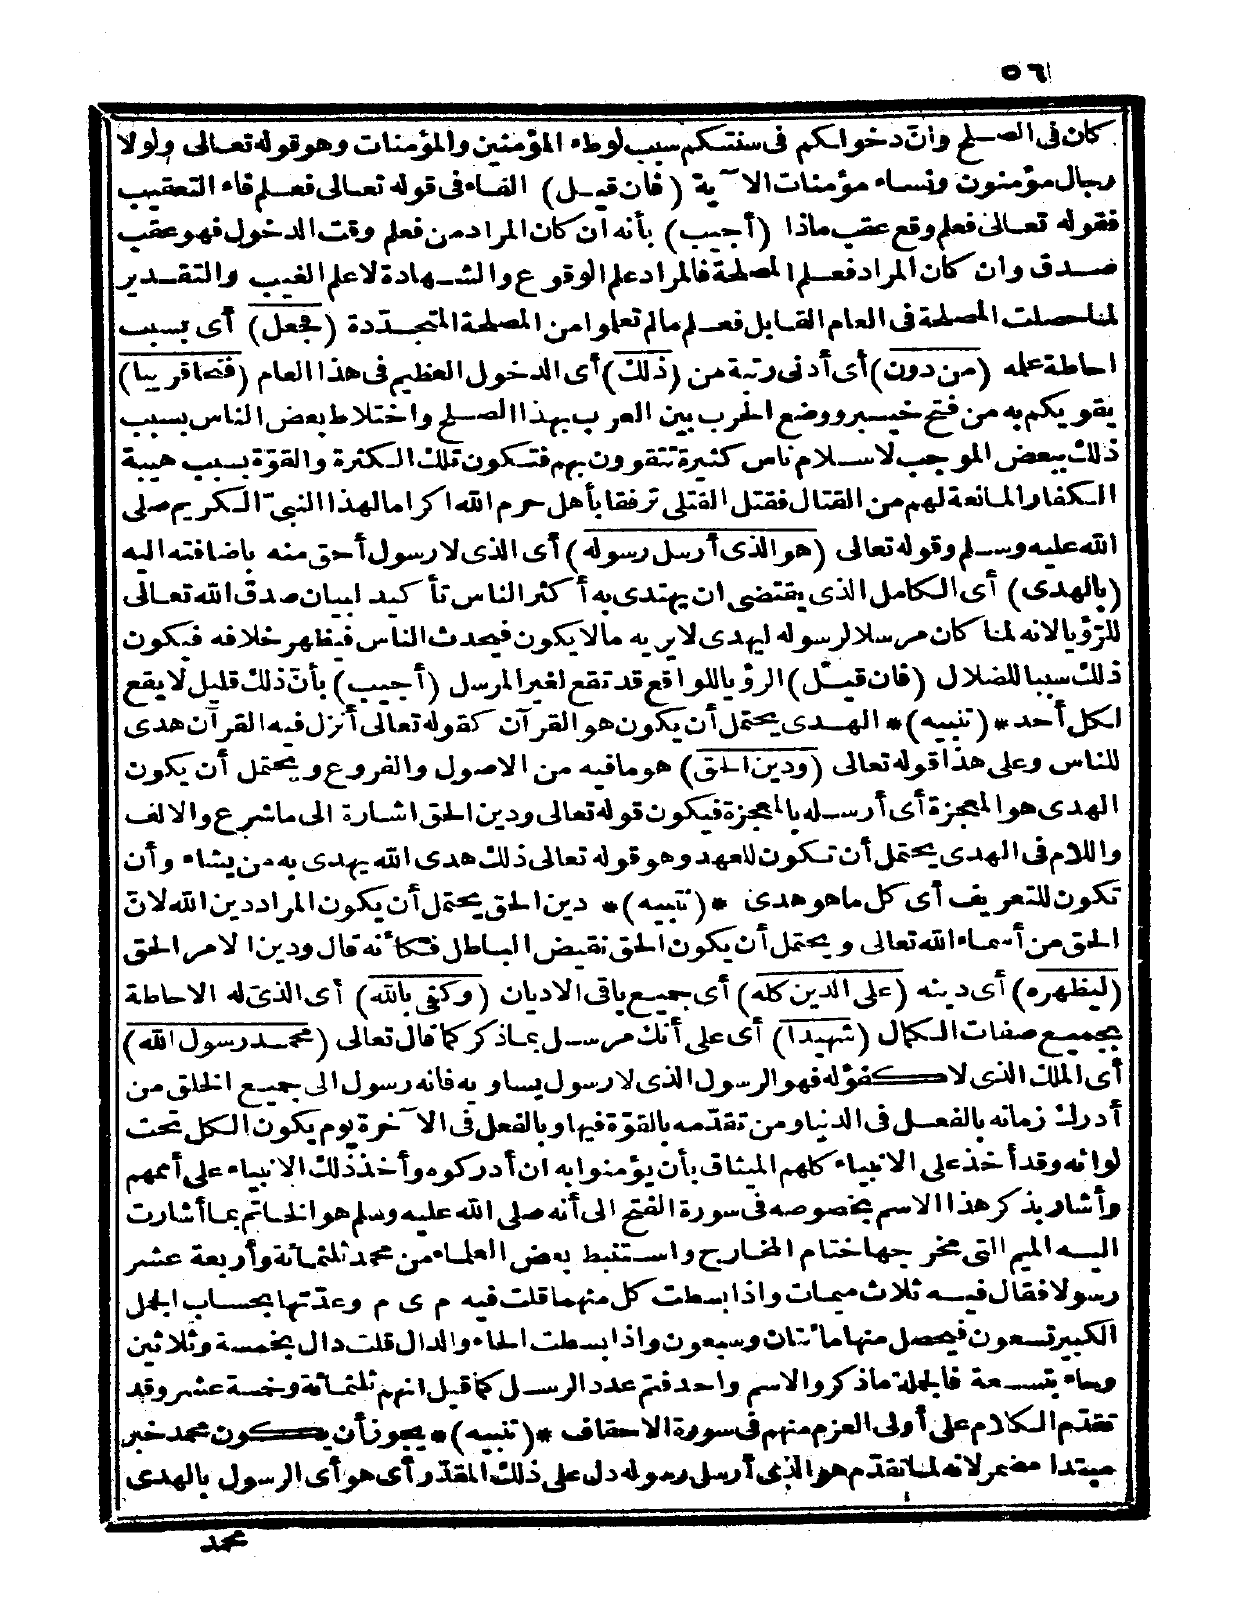 ٥٦
كان فى الصلح وانّ دخولكم فى سنتكم سبب لوطء المؤمنين والمؤمنات وهو قوله تعالى ولولا
رجال مؤمنون ونساء مؤمنات الآية (فان قيل) الفاء فى قوله تعالى فعلم فاء التعقيب
فقوله تعالى فعلم وقع عقب ماذا (أجيب) بأنه ان كان المراد من فعلم وقت الدخول فهو عقب
صدق وان كان المراد فعلم المصلحة فالمراد علم الوقوع والشهادة لا علم الغيب والتقدير
لما حصلت المصلحة فى العام القابل فعلم مالم تعلموا من المصلحة المتجدّدة (فجعل) أى بسبب
احاطة علمه (من دون) أى أدنى رتبة من (ذلك) أى الدخول العظيم فى هذا العام (فتحا قريبا)
يقويكم به من فتح خيبر ووضع الحرب بين العرب بهذا الصلح واختلاط بعض الناس بسبب
ذلك ببعض الموجب لاسلام ناس كثيرة تتقوون بهم فتكون تلك الكثرة والقوّة بسبب هيبة
الكفار المانعة لهم من القتال فقتل القتلى ترفقا بأهل حرم الله اكراما لهذا النبىّ الكريم صلى
الله عليه وسلم وقوله تعالى (هو الذى أرسل رسوله) أى الذى لا رسول أحق منه باضافته اليه
(بالهدى) أى الكامل الذى يقتضى ان يهتدى به أكثر الناس تأكيد لبيان صدق الله تعالى
للرّؤيا لانه لما كان مرسلا لرسوله ليهدى لا يريه مالا يكون فيحدث الناس فيظهر خلافه فيكون
ذلك سببا للضلال (فان قيل) الرؤيا للواقع قد تقع لغير المرسل (أجيب) بأنّ ذلك قليل لا يقع
لكل أحد * (تنبيه) * الهدى يحتمل أن يكون هو القرآن كقوله تعالى أنزل فيه القرآن هدى
للناس وعلى هذا قوله تعالى (ودين الحق) هو ما فيه من الاصول والفروع ويحتمل أن يكون
الهدى هو المعجزة أى أرسله بالمعجزة فيكون قوله تعالى ودين الحق اشارة الى ما شرع والالف
واللام فى الهدى يحتمل أن تكون للعهد وهو قوله تعالى ذلك هدى الله يهدى به من يشاء وأن
تكون للتعريف أى كل ما هو هدى * (تنبيه) * دين الحق يحتمل أن يكون المراد دين الله لانّ
الحق من أسماء الله تعالى ويحتمل أن يكون الحق نقيض الباطل فكأنه قال ودين الامر الحق
(ليظهره) أى دينه (على الدين كله) أى جميع باقى الاديان (وكفى بالله) أى الذى له الاحاطة
بجميع صفات الكمال (شهيدا) أى على أنك مرسل بما ذكر كما قال تعالى (محمد رسول الله)
أى الملك الذى لا كفؤ له فهو الرسول الذى لا رسول يساويه فانه رسول الى جميع الخلق من
أدرك زمانه بالفعل فى الدنيا ومن تقدّمه بالقوّة فيها وبالفعل فى الآخرة يوم يكون الكل تحت
لوائه وقد أخذ على الانبياء كلهم الميثاق بأن يؤمنوا به ان أدركوه وأخذ ذلك الانبياء على أممهم
وأشار بذكر هذا الاسم بخصوصه فى سورة الفتح الى أنه صلى الله عليه وسلم هو الخاتم بما أشارت
اليه الميم التى مخرجها ختام المخارج واستنبط بعض العلماء من محمد ثلثمائة وأربعة عشر
رسولا فقال فيه ثلاث ميمات واذا بسطت كل منهما قلت فيه م ى م وعدّتها بحساب الجمل
الكبير تسعون فيحصل منها مائتان وسبعون واذا بسطت الحاء والدال قلت دال بخمسة وثلاثين
وحاء بتسعة فالجملة ما ذكر والاسم واحد فتم عدد الرسل كما قيل انهم ثلثمائة وخمسة عشر وقد
تقدّم الكلام على أولى العزم منهم فى سورة الاحقاف * (تنبيه) * يجوز أن يكون محمد خبر
مبتدا مضمر لانه لما تقدّم هو الذى أرسل رسوله دل على ذلك المقدّر أى هو أى الرسول بالهدى
محمد